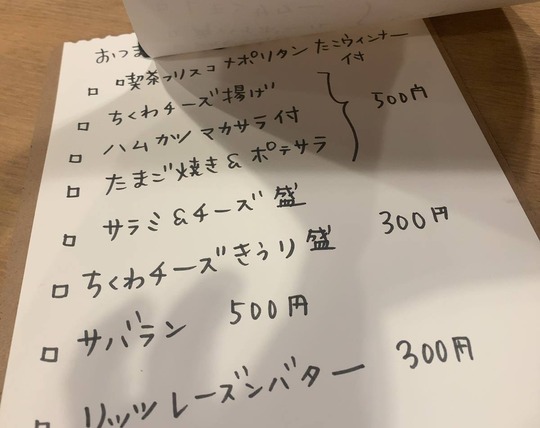 おつま
□ 喫茶フリスコ ナポリタン たこウィンナー付
□ ちくわチーズ揚げ
□ ハムカツ マカサラ付
□ たまご焼き & ポテサラ
500円
□ サラミ&チーズ盛
□ ちくわチーズきうり盛 300円
□ サバラン 500円
□ リッツレーズンバター 300円